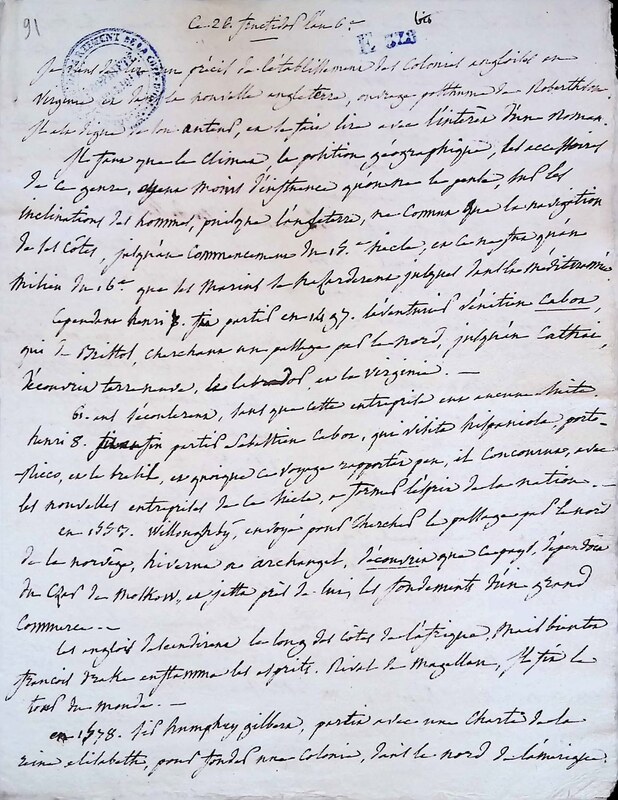 91
Ce 26. fructidor l'an 6e
bis
E 328
DEPARTEMENT DE LA COTE D'OR
Je viens de lire un précis de l'établissement des Colonies angloises en
Virginie et dans la nouvelle angleterre, ouvrage posthume de Robertson.
Il est digne de son auteur, et se fait lire avec l'intérêt d'un Roman.
Il faut que le climat, la position géographique, les accessoires
de ce genre, ayent moins d'influence qu'on ne le pense, sur les
inclinations des hommes, puisque l'angleterre, ne connut que la navigation
de ses côtes, jusqu'au commencement du 15e siecle, et ce ne fut qu'au
milieu du 16e que les Marins se hasarderent jusques dans la méditerranée
Cependant henri 7. fit partir en 1497. l'aventurier vénitien Cabot,
qui de Bristol, cherchant un passage par le nord, jusqu'au Cathai,
découvrit terreneuve, le labrador, et la virginie. —
61. ans s'écoulerent, sans que cette entreprise eut aucune suite.
henri 8. fit partir Sébastien Cabot, qui visita hispaniola, porto-
Ricco, et le bresil, et quoique ce voyage rapporta peu, il concourut, avec
les nouvelles entreprises de ce siecle, a former l'esprit de la nation. —
en 1553. Willoughby, envoyé pour chercher le passage par le nord
de la norvège, hiverna a archangel, découvrit que ce pays, dépendoit
du Czar de Moskow, et jetta près de lui, les fondements d'un grand
Commerce. —
Les anglois descendirent le long des côtes de l'afrique, Mais bientôt
francois drake enflamma les esprits. Rival de Magellan, il fit le
tour du monde. —
en 1578. Sir humphry gilbert, partit avec une Charte de la
reine elisabeth, pour fonder une Colonie, dans le nord de l'amérique.